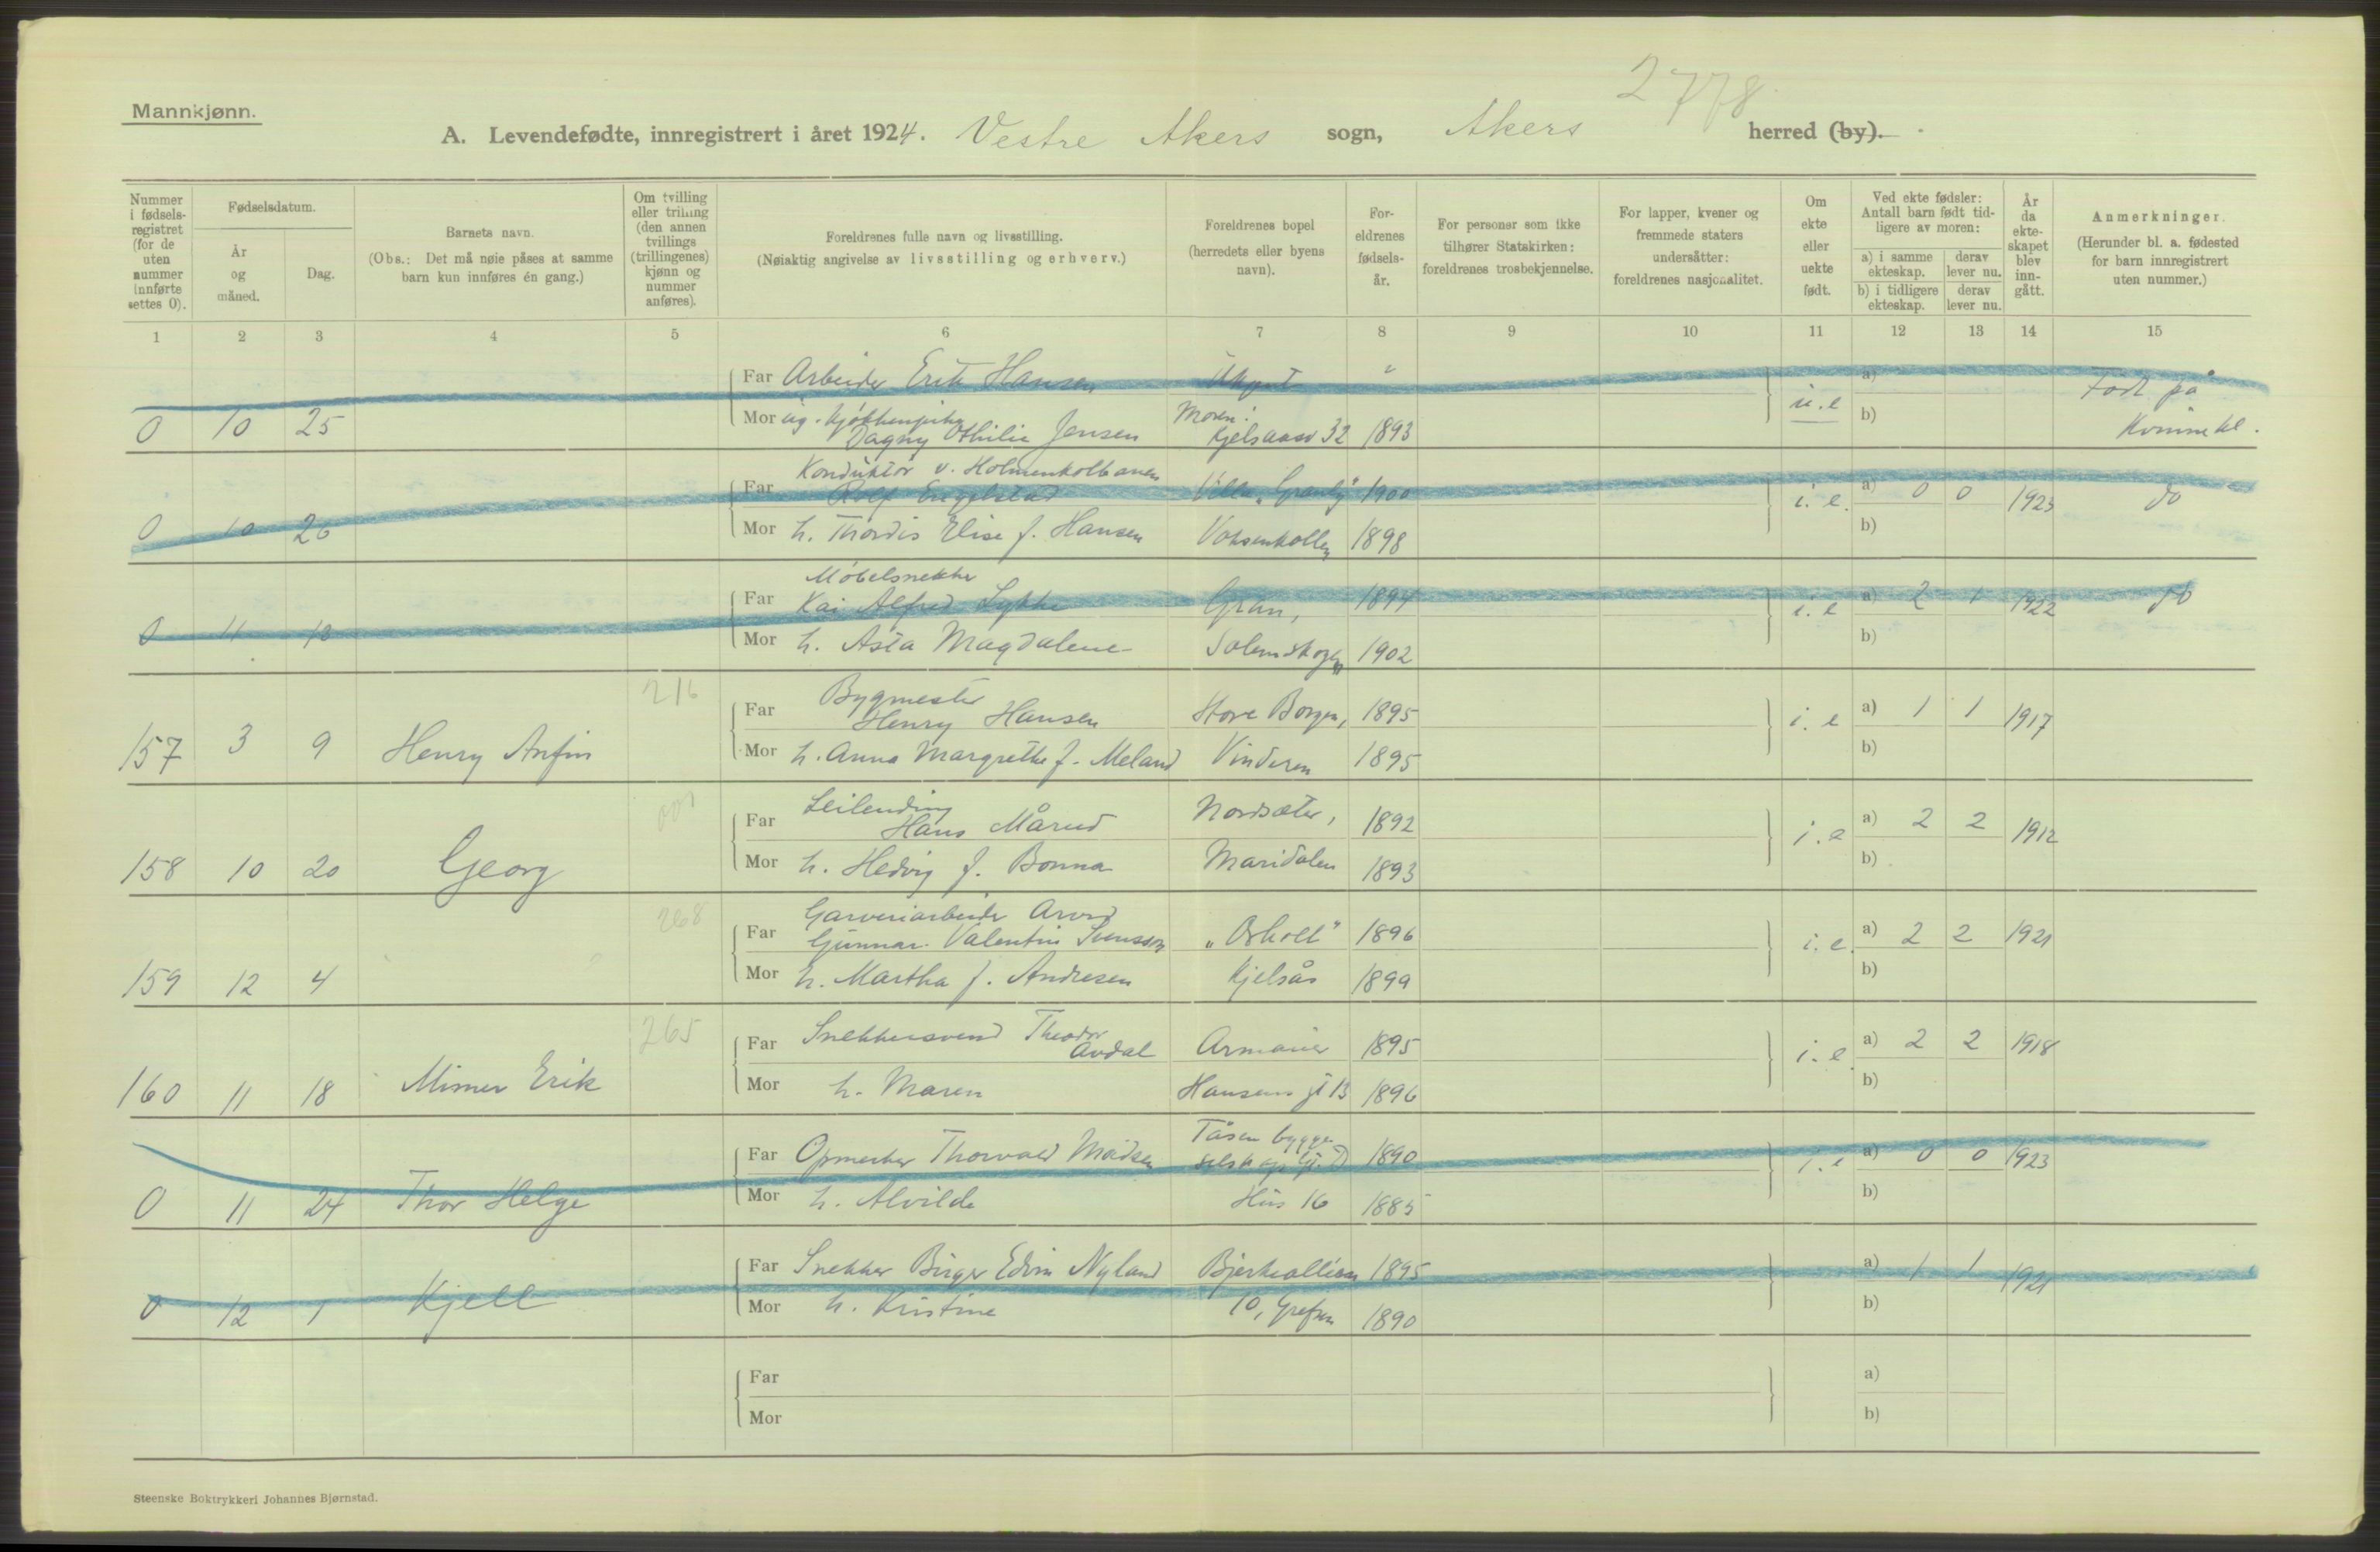 2778
Mannkjønn.
A. Levendefødte, innregistrert i året 1924. Vestre Akers sogn, Akers herred (by).
Nummer i fødsels-registret (for de uten nummer innførte settes 0).
Fødselsdatum.
År og måned.
Dag.
Barnets navn.
(Obs.: Det må nøie påses at samme barn kun innføres én gang.)
Om tvilling eller trilling (den annen tvillings (trillingenes) kjønn og nummer anføres).
Foreldrenes fulle navn og livsstilling.
(Nøiaktig angivelse av livsstilling og erhverv.)
Foreldrenes bopel (herredets eller byens navn).
For-eldrenes fødsels-år.
For personer som ikke tilhører Statskirken: foreldrenes trosbekjennelse.
For lapper, kvener og fremmede staters undersåtter: foreldrenes nasjonalitet.
Om ekte eller uekte født.
Ved ekte fødsler: Antall barn født tid-ligere av moren:
a) i samme ekteskap.
derav lever nu.
b) i tidligere ekteskap.
derav lever nu.
År da ekte-skapet blev inn-gått.
Anmerkninger.
(Herunder bl. a. fødested for barn innregistrert uten nummer.)
1 2 3 4 5 6 7 8 9 10 11 12 13 14 15
Far Arbeider Erik Hansen Ukjent " a) Født på
0 10 25 Mor ug. kjøkkenpike Dagny Othilie Jensen Moren: Kjelsåsv 32 1893 u.e b) Kvinnekl.
Konduktør v. Holmenkolbanen
Far Rolf Engelstad Villa "Granly" 1900 a) 0 0
0 10 20 Mor h. Thordis Elise f. Hansen Voksenkollen 1898 i.e. b) 1923 do
Møbelsnekker
Far Kai Alfred Lykke Gran, 1894 a) 2 1
0 11 13 Mor h. Asta Magdalene Solemskogen 1902 i.e b) 1922 do
216
Far Bygmester Henry Hansen Store Borgen, 1895 a) 1 1
157 3 9 Henry Anfin Mor h. Anna Margrethe f. Meland Vinderen 1895 i.e b) 1917
Far Leilending Hans Mårud Nordsæter, 1892 a) 2 2
158 10 20 Georg Mor h. Hedvig f. Bonna Maridalen 1893 i.e b) 1912
268
Garveriarbeider Arvid
Far Gunnar Valentin Svensson 1896 a) 2 2
159 12 4 Mor h. Martha f. Andresen Kjelsås 1899 i.e. b) 1921
265
Far Snekkersvend Theodor Avdal Armauer 1895 a) 2 2
160 11 18 Mimer Erik Mor h. Maren Hansens gt 13 1896 i.e. b) 1918
Far Opmerker Thorvald Madsen Tåsen bygge selskap 1890 a) 0 0
0 11 24 Thor Helge Mor h. Alvilde Hus 16 1885 i.e b) 1923
Far Snekker Birger Edvin Nyland Bjerkealleen 1895 a) 1 1
0 12 1 Kjell Mor h. Kristine 10, Grefsen 1890 b) 1921
Far a)
Mor b)
Steenske Boktrykkeri Johannes Bjørnstad.